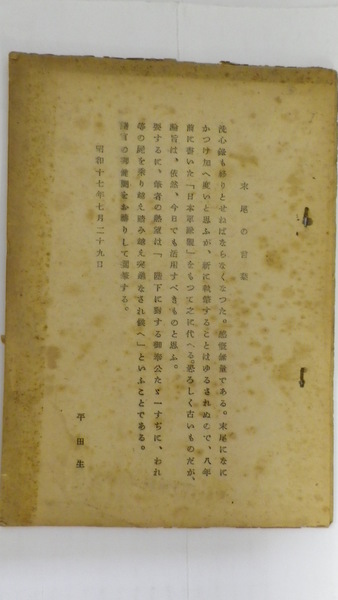 末尾の言葉
洗心録も終りとせねばならなくなつた。感慨無量である。末尾になに
かつけ加へ度いと思ふが、新に執筆することはゆるされぬので、八年
前に書いた「日本軍歌觀」をもつて之に代へる。恐ろしく古いものだが、
論旨は、依然、今日でも活用すべきものと思ふ。
要するに、筆者の熱望は「陛下に對する御奉公たゞ一すぢに、われ
等の屍を乘り越え踏み越え突進なされ候へ」といふことである。
諸官の御健鬪をお祈りして擱筆する。
昭和十七年七月二十九日
平田生